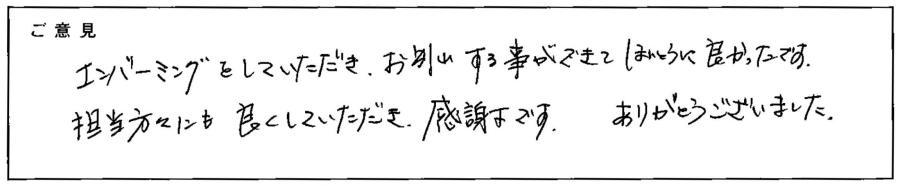 ご意見
エンバーミングをしていただき、お別れする事ができてほんとうに良かったです。
担当方々にも良くしていただき、感謝です。 ありがとうございました。